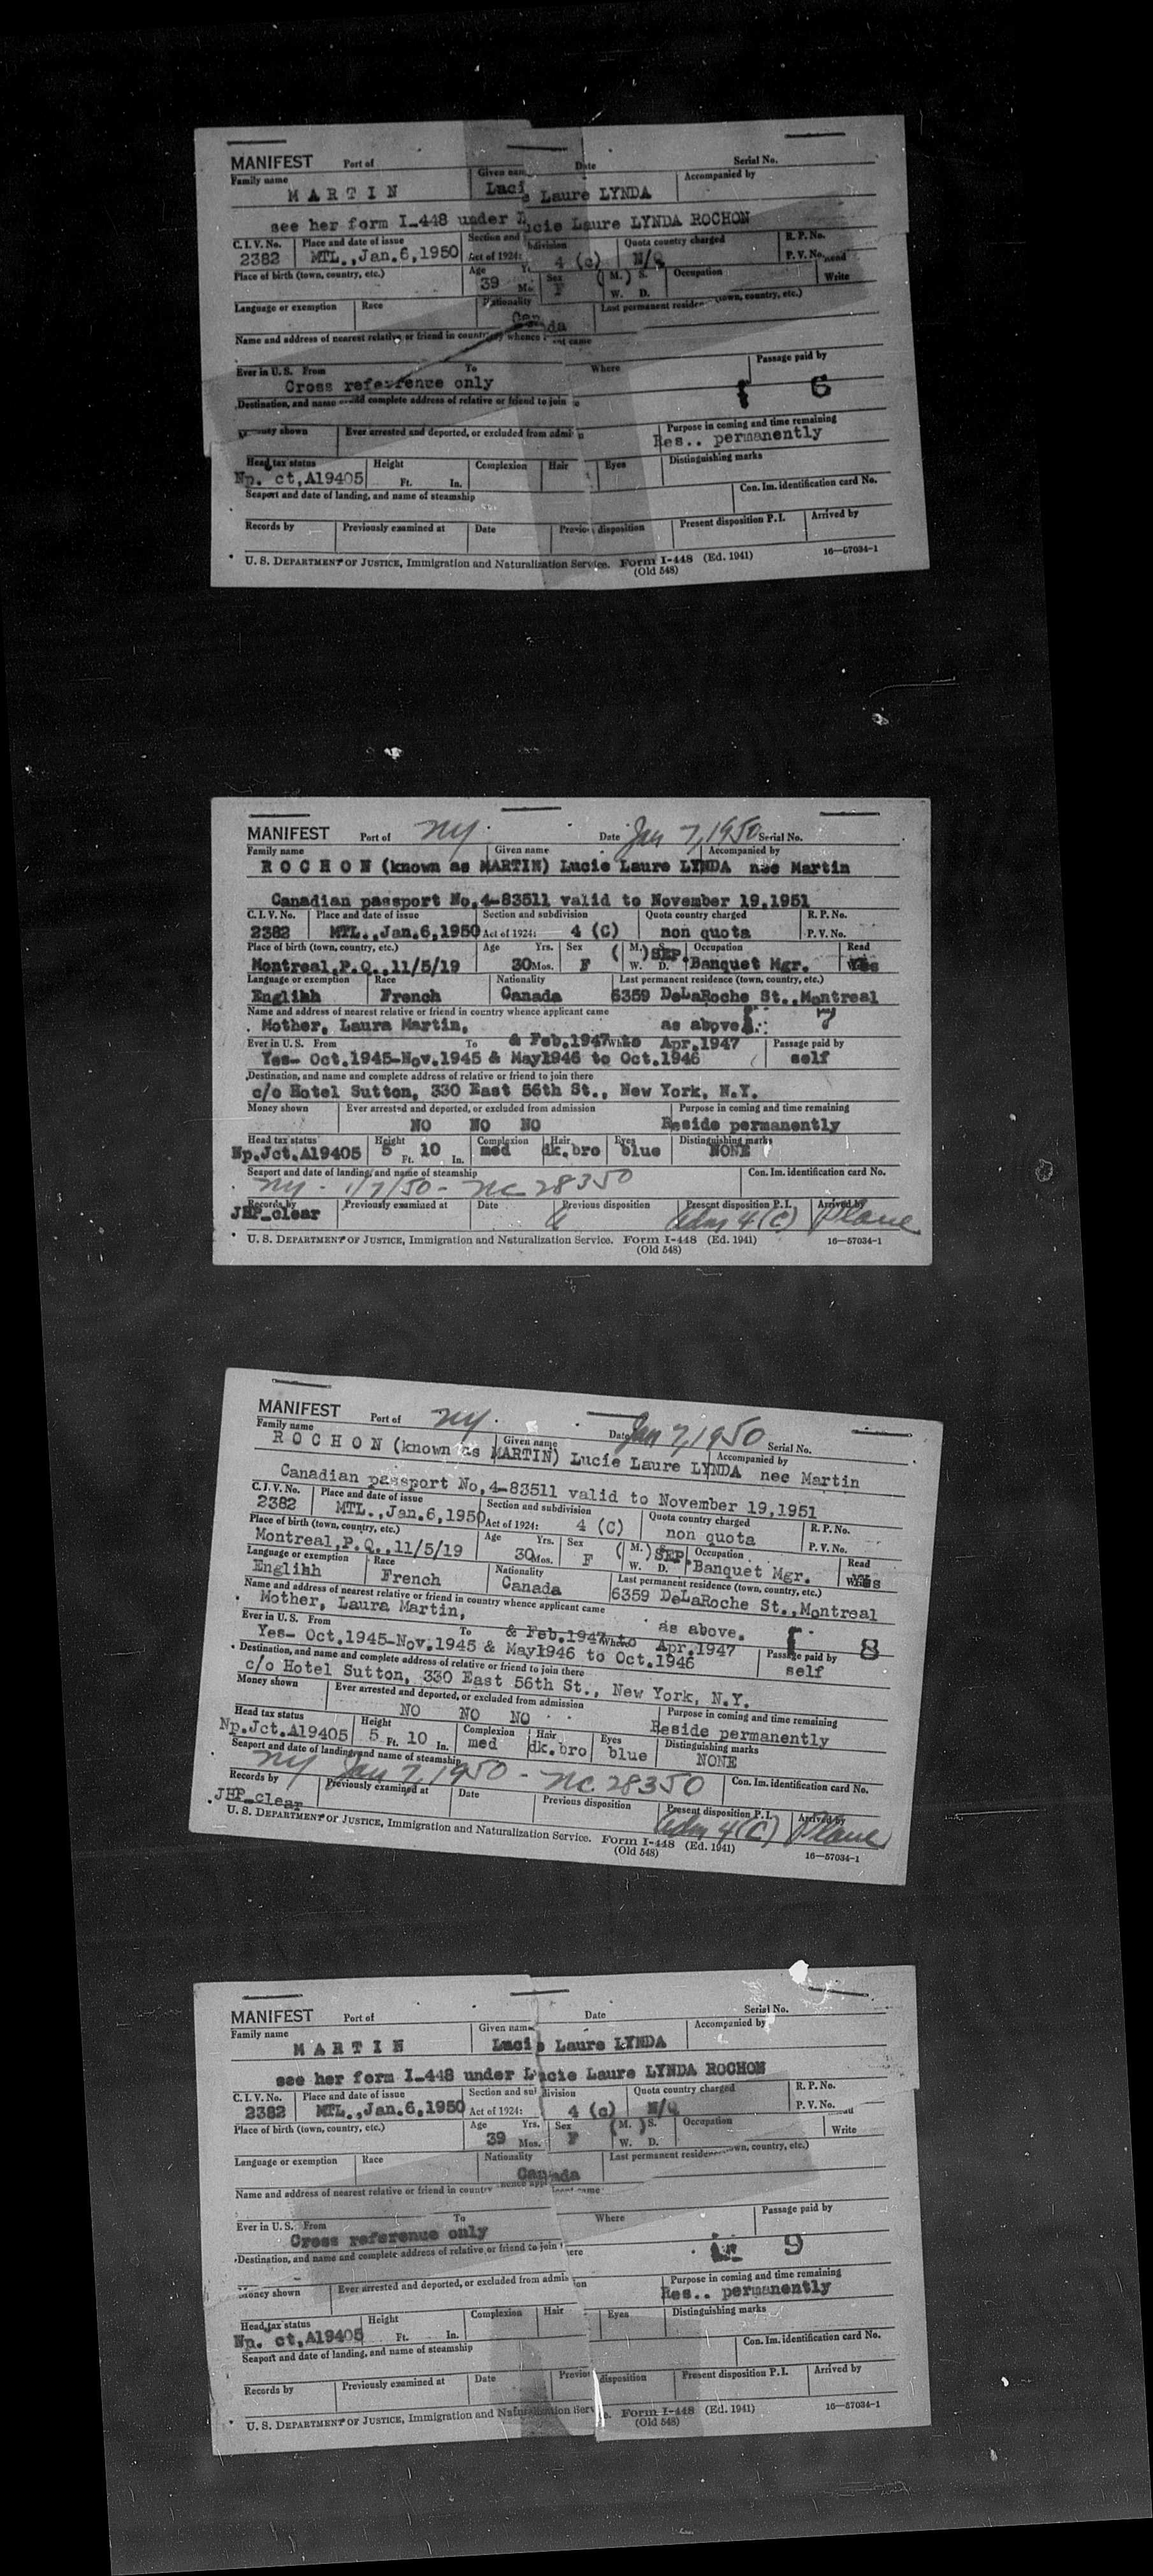 MANIFEST Port of Date Serial No.
Family name Given nam Accompanied by
M A R T I N Luci e Laure LYNDA
see her form I-448 under L ucie Laure LYNDA ROCHON
C. I. V. No. Place and date of issue Section and division Quota country charged R. P. No.
2382 MTL., Jan. 6, 1950 Act of 1924: 4 (c) N/Q P. V. No.
Place of birth (town, country, etc.) Age Sex (M.) S. Occupation
39 Mo F W. D. Write
Language or exemption Race Nationality Last permanent residen (town, country, etc.)
Can da
Name and address of nearest relative or friend in country whence came
Ever in U. S. From To Where Passage paid by
Cross reference only 6
Destination, and name complete address of relative or friend to join
shown Ever arrested and deported, or excluded from admi Purpose in coming and time remaining
Res.. permanently
Head tax status Height Complexion Hair Eyes Distinguishing marks
Np. ct, A19405 Ft. In.
Seaport and date of landing, and name of steamship Con. Im. identification card No.
Records by Previously examined at Date Previo disposition Present disposition P. I. Arrived by
U. S. DEPARTMENT OF JUSTICE, Immigration and Naturalization Service. Form I-448 (Ed. 1941) 16—57034-1
(Old 548)
MANIFEST Port of NY. Date Jan 7, 1950 Serial No.
Family name Given name Accompanied by
R O C H O N (known as MARTIN) Lucie Laure LYNDA nee Martin
Canadian passport No. 4-83511 valid to November 19, 1951
C. I. V. No. Place and date of issue Section and subdivision Quota country charged R. P. No.
2382 MTL., Jan. 6, 1950 Act of 1924: 4 (C) non quota P. V. No.
Place of birth (town, country, etc.) Age Yrs. Sex (M.) SEP. Occupation Read
Montreal, P.Q., 11/5/19 30 Mos. F W. D. Banquet Mgr. Yes
Language or exemption Race Nationality Last permanent residence (town, country, etc.)
Englihh French Canada 6359 DeLaRoche St., Montreal
Name and address of nearest relative or friend in country whence applicant came 7
Mother, Laura Martin, as above.
Ever in U. S. From To & Feb. 1947 to Apr. 1947 Passage paid by
Yes- Oct. 1945-Nov. 1945 & May1946 to Oct. 1946 self
Destination, and name and complete address of relative or friend to join there
c/o Hotel Sutton, 330 East 56th St., New York, N.Y.
Money shown Ever arrested and deported, or excluded from admission Purpose in coming and time remaining
NO NO NO Reside permanently
Head tax status Height Complexion Hair Eyes Distinguishing marks
Np. Jct. A19405 5 Ft. 10 In. med dk. bro blue NONE
Seaport and date of landing, and name of steamship Con. Im. identification card No.
NY - 1/7/50 - NC 28350
Records by Previously examined at Date Previous disposition Present disposition P. I. Arrived by
JEP_clear Adm 4(C) Plane
U. S. DEPARTMENT OF JUSTICE, Immigration and Naturalization Service. Form I-448 (Ed. 1941) 16—57034-1
(Old 548)
MANIFEST Port of NY. Date Jan 7, 1950 Serial No.
Family name Given name Accompanied by
R O C H O N (known as MARTIN) Lucie Laure LYNDA nee Martin
Canadian passport No. 4-83511 valid to November 19, 1951
C. I. V. No. Place and date of issue Section and subdivision Quota country charged R. P. No.
2382 MTL., Jan. 6, 1950 Act of 1924: 4 (C) non quota P. V. No.
Place of birth (town, country, etc.) Age Yrs. Sex (M.) SEP. Occupation Read
Montreal, P.Q., 11/5/19 30 Mos. F W. D. Banquet Mgr. Yes
Language or exemption Race Nationality Last permanent residence (town, country, etc.)
Englihh French Canada 6359 DeLaRoche St., Montreal
Name and address of nearest relative or friend in country whence applicant came
Mother, Laura Martin, as above. 8
Ever in U. S. From To & Feb. 1947 Where to Apr. 1947 Passage paid by
Yes- Oct. 1945-Nov. 1945 & May1946 to Oct. 1946 self
Destination, and name and complete address of relative or friend to join there
c/o Hotel Sutton, 330 East 56th St., New York, N.Y.
Money shown Ever arrested and deported, or excluded from admission Purpose in coming and time remaining
NO NO NO Reside permanently
Head tax status Height Complexion Hair Eyes Distinguishing marks
Np. Jct. A19405 5 Ft. 10 In. med dk. bro blue NONE
Seaport and date of landing, and name of steamship Con. Im. identification card No.
NY Jan 7, 1950 - NC 28350
Records by Previously examined at Date Previous disposition Present disposition P. I. Arrived by
JEP_clear Adm 4(C) Plane
U. S. DEPARTMENT OF JUSTICE, Immigration and Naturalization Service. Form I-448 (Ed. 1941) 16—57034-1
(Old 548)
MANIFEST Port of Date Serial No.
Family name Given name Accompanied by
M A R T I N Luci e Laure LYNDA
see her form I-448 under Lucie Laure LYNDA ROCHON
C. I. V. No. Place and date of issue Section and sub division Quota country charged R. P. No.
2382 MTL., Jan. 6, 1950 Act of 1924: 4 (c) N/Q P. V. No.
Place of birth (town, country, etc.) Age Yrs. Sex (M.) S. Occupation
39 Mos. F W. D. Write
Language or exemption Race Nationality Last permanent residen town, country, etc.)
Canada
Name and address of nearest relative or friend in country whence came
Ever in U. S. From To Where Passage paid by
Cross reference only 9
Destination, and name and complete address of relative or friend to join here
Money shown Ever arrested and deported, or excluded from admis on Purpose in coming and time remaining
Res.. permanently
Head tax status Height Complexion Hair Eyes Distinguishing marks
Np. ct, A19405 Ft. In.
Seaport and date of landing, and name of steamship Con. Im. identification card No.
Records by Previously examined at Date Previou disposition Present disposition P. I. Arrived by
U. S. DEPARTMENT OF JUSTICE, Immigration and Naturalization Serv e. Form I-448 (Ed. 1941) 16—57034-1
(Old 548)